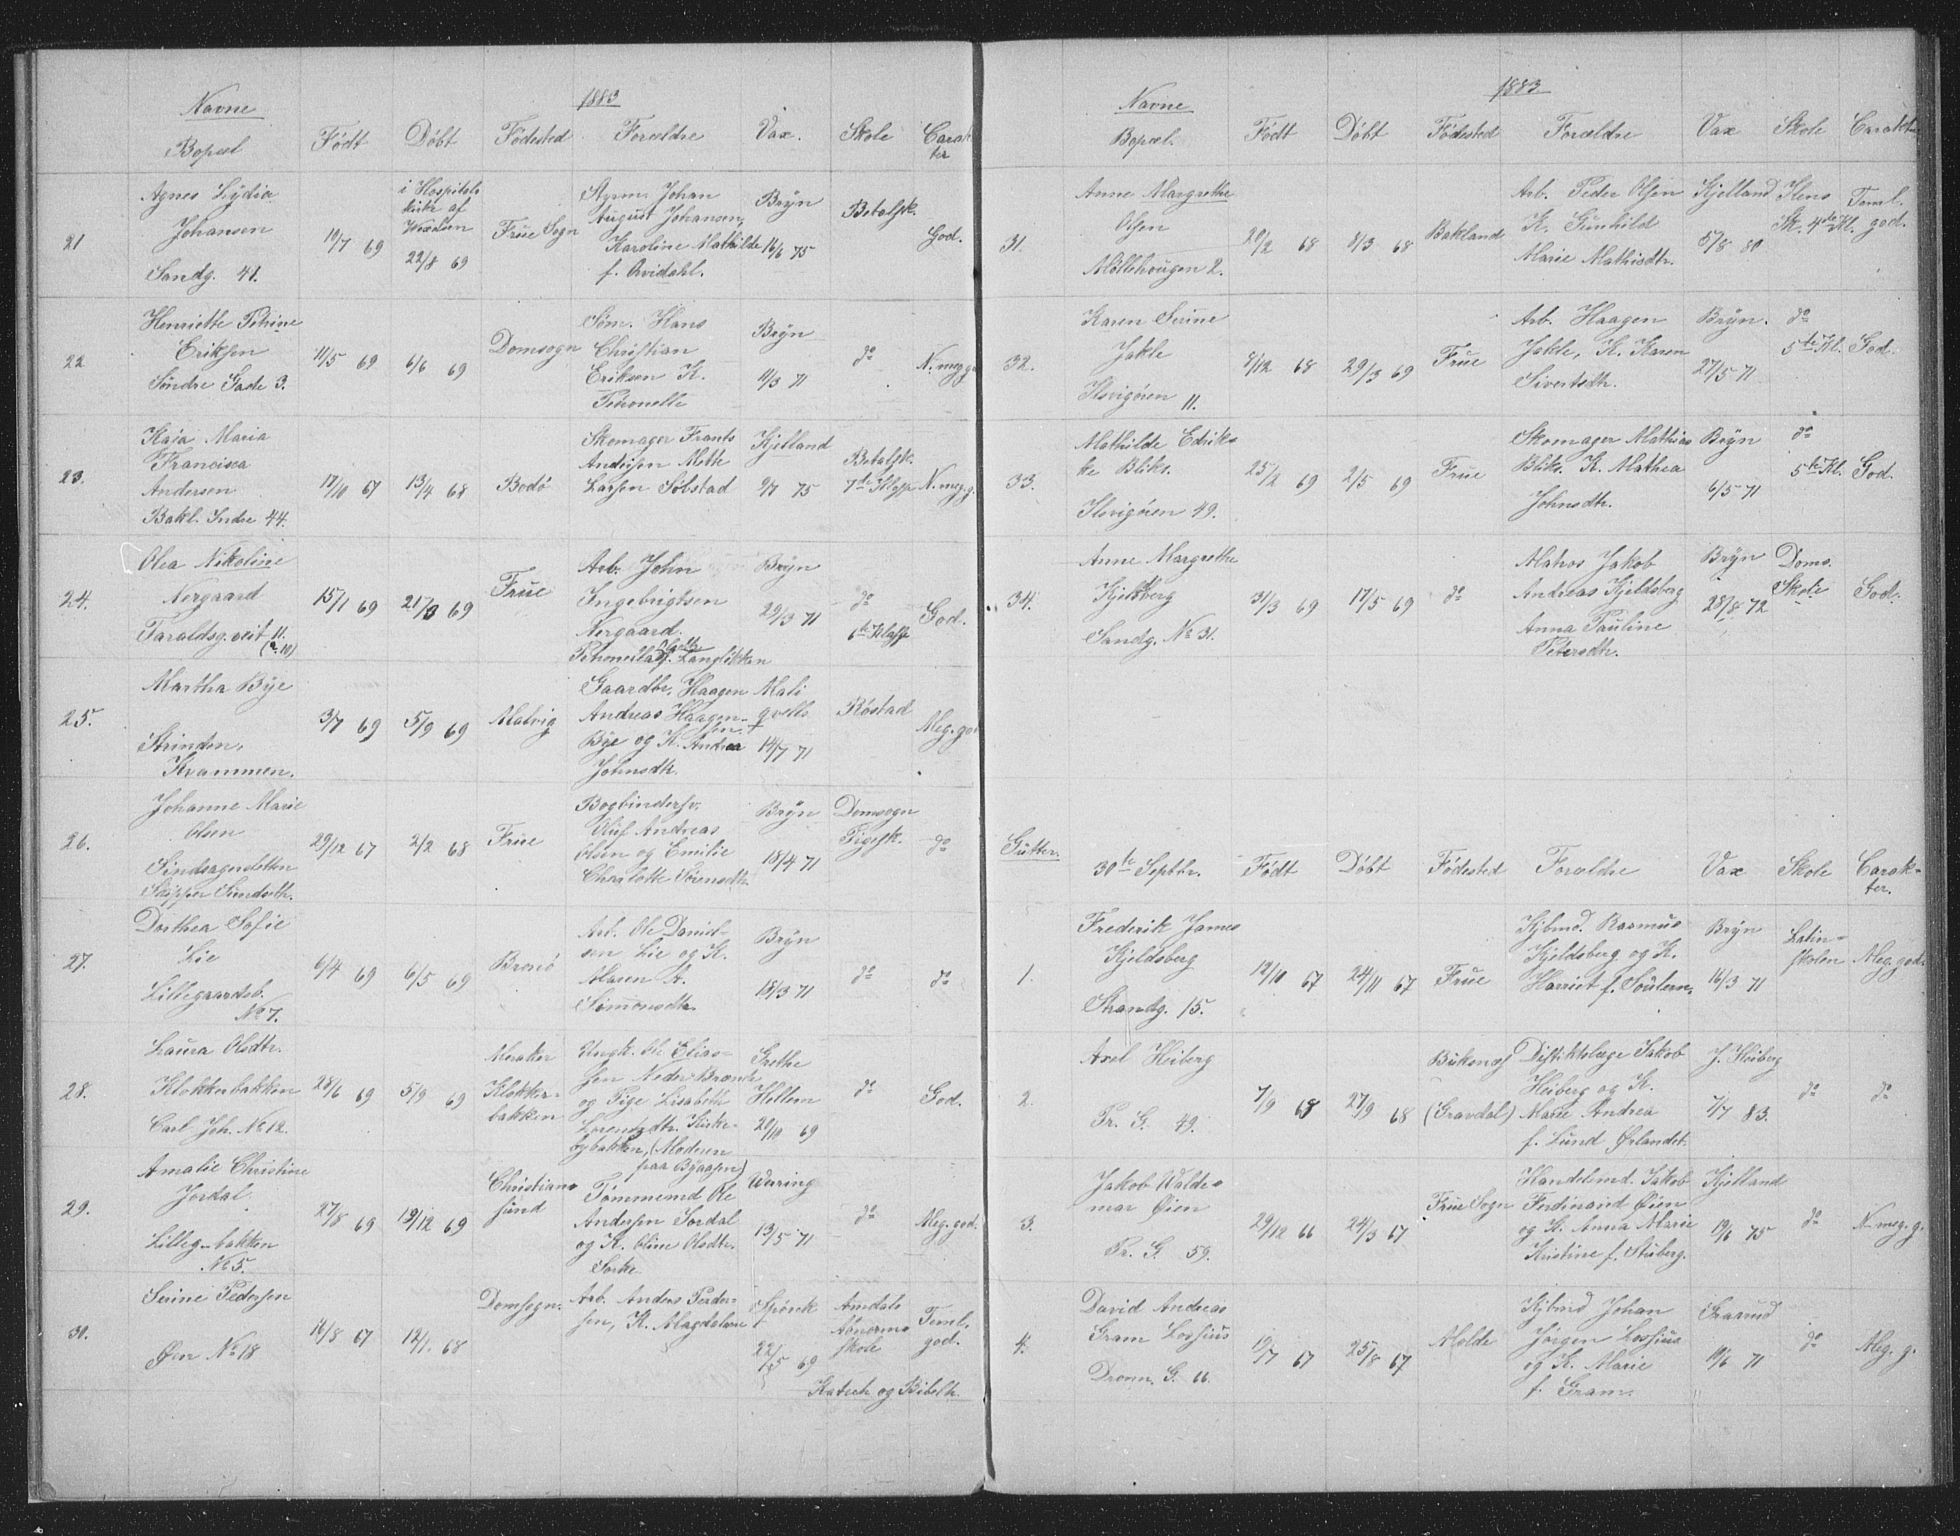 1883
Navne
Bopæl
Født
Døbt
Fødested
Forældre
Vax.
Skole
Carakter
21
Agnes Lydia
Johansen
Sandg. 41.
19/7 69
i Hospitals
kirke af
22/8 69
Frue Sogn
Johan
August Johansen,
Karoline Mathilde
f. Arvidahl.
Bryn
16/6 75
Betalsk.
God.
22
Henriette Petrine
Eriksen
Søndre Gade 3.
11/5 69
6/6 69
Domsogn
Søm. Hans
Christian
Eriksen K.
Petronelle
Bryn
11/3 71
do
N. meg g.
23.
Kaja Maria
Francisca
Andersen
Bakl. Indre 44.
17/10 67
13/4 68
Bodø
Skomager Frants
Andersen Mette
Larsen Søbstad
Kjelland
9/7 75
Betalsk.
7de Klasse
N. meg g.
24.
Olea Nikoline
Nergaard
Taraldsg. veit 11.
(a. 10)
15/1 69
21/3 69
Frue
Arb. John
Ingebrigtsen
Nergaard.
Petronella Langlikken
Bryn
29/3 71
do
6te Klasse
God.
25.
Martha Bye
Strinden,
Kvammen.
3/7 69
5/9 69
Malvig
Gaardbr. Haagen
Andreas Haagen-
sen
Bye og K. Andrea
Johnsdtr.
Mali
qvells
14/7 71
Røstad
Meg. god
26.
Johanne Marie
Olsen
Sindsagersletten
Skipper Sindseth.
29/12 67
2/2 68
Frue
Bogbindersv.
Oluf Andreas
Olsen og Emilie
Charlotte Sørensdtr.
Bryn
18/4 71
Domsogn
Pigesk.
do
27.
Dorthea Sofie
Lie
Lillegaardsb.
No 7.
6/4 69
6/5 69
Brønø
Arb. Ole David-
sen Lie og K.
Maren A.
Simonsdtr.
Bryn
18/3 71
do
do
28.
Laura Olsdtr.
Klokkerbakken
Carl Joh. No 12.
28/6 69
5/9 69
Meraker
Klokker-
bakken
Ungk. Ole Elias-
sen Neder Brænde
og Pige Lisabeth
Lorentsdtr. Kirke-
bybakken, (Moderen
paa Byaasen)
Grethe
Hellem
20/10 69
do
God.
29.
Amalie Christine
Jordal
Lilleg.bakken
No 5.
27/8 69
19/12 69
Christian-
sund
Tømmermd Ole
Andersen Jordal
og K. Oline Olsdtr.
Waring
13/5 71
do
Meg. god.
30.
Serine Pedersen
Øen No 18
16/8 67
12/1 68
Domsogn.
Arb. Anders Peder-
sen, K. Magdalene
Spørck
22/5 69
Amdals
Abnorme
skole
Teml.
god.
Katech og Bibelh.
1883
Navne
Bopæl.
Født
Døbt
Fødested
Forældre
Vax
Skole
Carakter
31.
Anne Margrethe
Olsen
Møllehougen 2.
20/2 68
8/3 68
Bakland
Arb. Peder Olsen
K. Gunhild
Marie Mathisdtr.
Kjelland
5/8 80
Ilens
Sk. 4de Kl.
Teml.
god.
32.
Karen Serine
Jakle
Ilsvigøren 11.
8/12 68
29/3 69
Frue
Arb. Haagen
Jakle, K. Karen
Sivertsdtr.
Bryn.
27/5 71
do
5te Kl.
God.
33.
Mathilde Edrik-
ke Bliks.
Ilsvigøren 49.
25/2 69
2/5 69
Frue
Skomager Mathias
Bliks. K. Mathea
Johnsdtr.
Bryn
6/5 71
do
5te Kl.
God.
34.
Anne Margrethe
Kjeldsberg
Sandg. No 31.
31/3 69
17/5 69
do
Matros Jakob
Andreas Kjeldsberg
Anna Pauline
Petersdtr.
Bryn
28/8 72
Doms.
Skole
God.
Gutter.
30te Septbr.
Født
Døbt
Fødested
Forældre
Vax
Skole
Carak-
ter.
1.
Frederik James
Kjeldsberg
Strandg. 15.
12/10 67
24/11 67
Frue
Kjbmd. Rasmus
Kjeldsberg og K.
Harriet f. Soutern.
Bryn
16/3 71
Latin-
skolen
Meg. god.
2.
Axel Heiberg
Pr. G. 49.
7/9 68
27/9 68
Buksnæs
(Gravdal)
Distriktslæge Jakob
Heiberg og K.
Marie Andrea
f. Lund Ørlandet
J. Heiberg
7/7 83.
do
do
3.
Jakob Walde-
mar Øien
Pr. G. 59.
29/12 66
24/3 67
Frue Sogn
Handelsmd. Jakob
Ferdinand Øien
og K. Anna Marie
Kristine f. Stuberg.
Kjelland
19/6 75
do
N. meg. g.
4.
David Andreas
Gram Lossius
Dronn. G. 66.
19/7 67
25/8 67
Molde
Kjbmd Johan
Jørgen Lossius
og K. Marie
f. Gram.
Graarud
10/6 71
do
Meg. g.